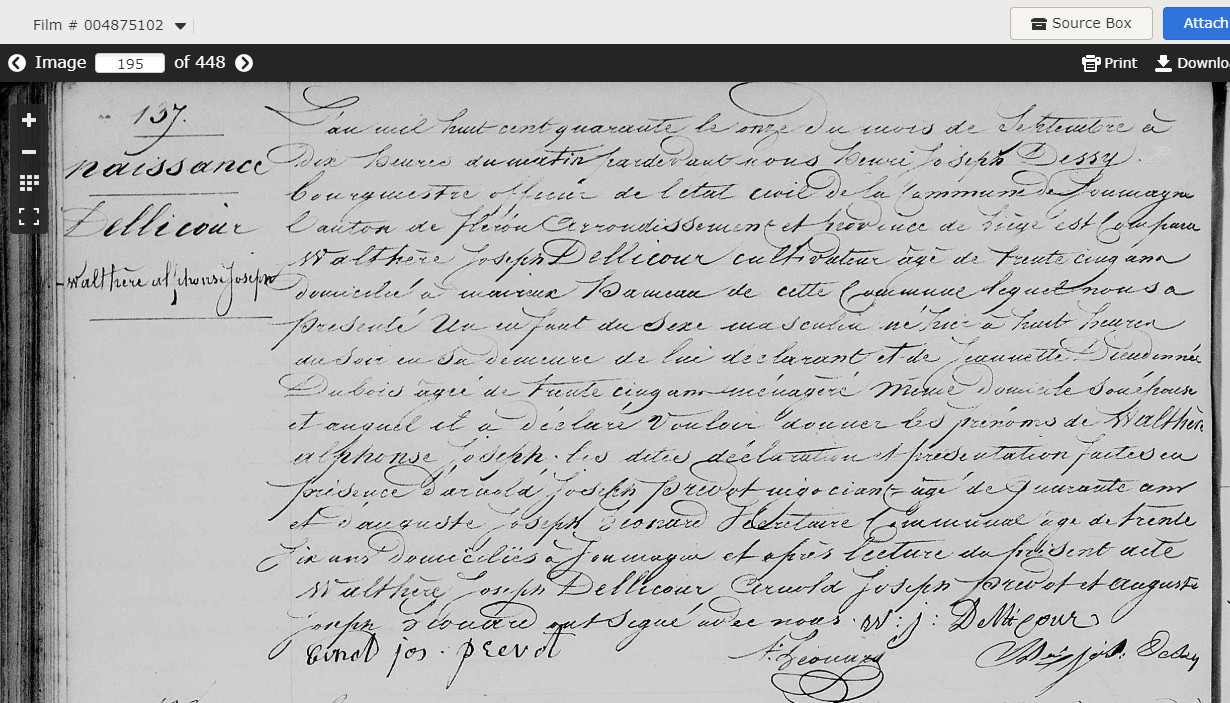 Film # 004875102
Source Box
Attach
Image 195 of 448
Print
Downlo
137.
naissance
Dellicour
Walthère alphonse Joseph
L'an mil huit cent quarante le onze du mois de Septembre à
dix heures du matin pardevant nous henri Joseph Dessy
bourguestre officier de l'état civil de la Commune de Soumagne
Canton de fléron Arrondissement et province de Liège est Comparu
Walthère Joseph Dellicour cultivateur âgé de trente cinq ans
domicilié à maireux hameau de cette Commune lequel nous a
présenté Un enfant du sexe masculin né hier à huit heures
du soir en sa demeure de lui déclarant et de Jeannette Dieudonnée
Dubois âgée de trente cinq ans ménagère même domicile son épouse
et auquel il a déclaré vouloir donner les prénoms de Walthère
alphonse Joseph. les dites déclaration et présentation faites en
présence d'arnold Joseph prevot négociant âgé de quarante ans
et d'auguste Joseph Léonard Secrétaire Communal âgé de trente
six ans domiciliés à Soumagne et après lecture du présent acte
Walthère Joseph Dellicour Arnold Joseph prevot et auguste
joseph Léonard ont signé avec nous. W: j: Dellicour
jos. prevot
A. Léonard
Dessy